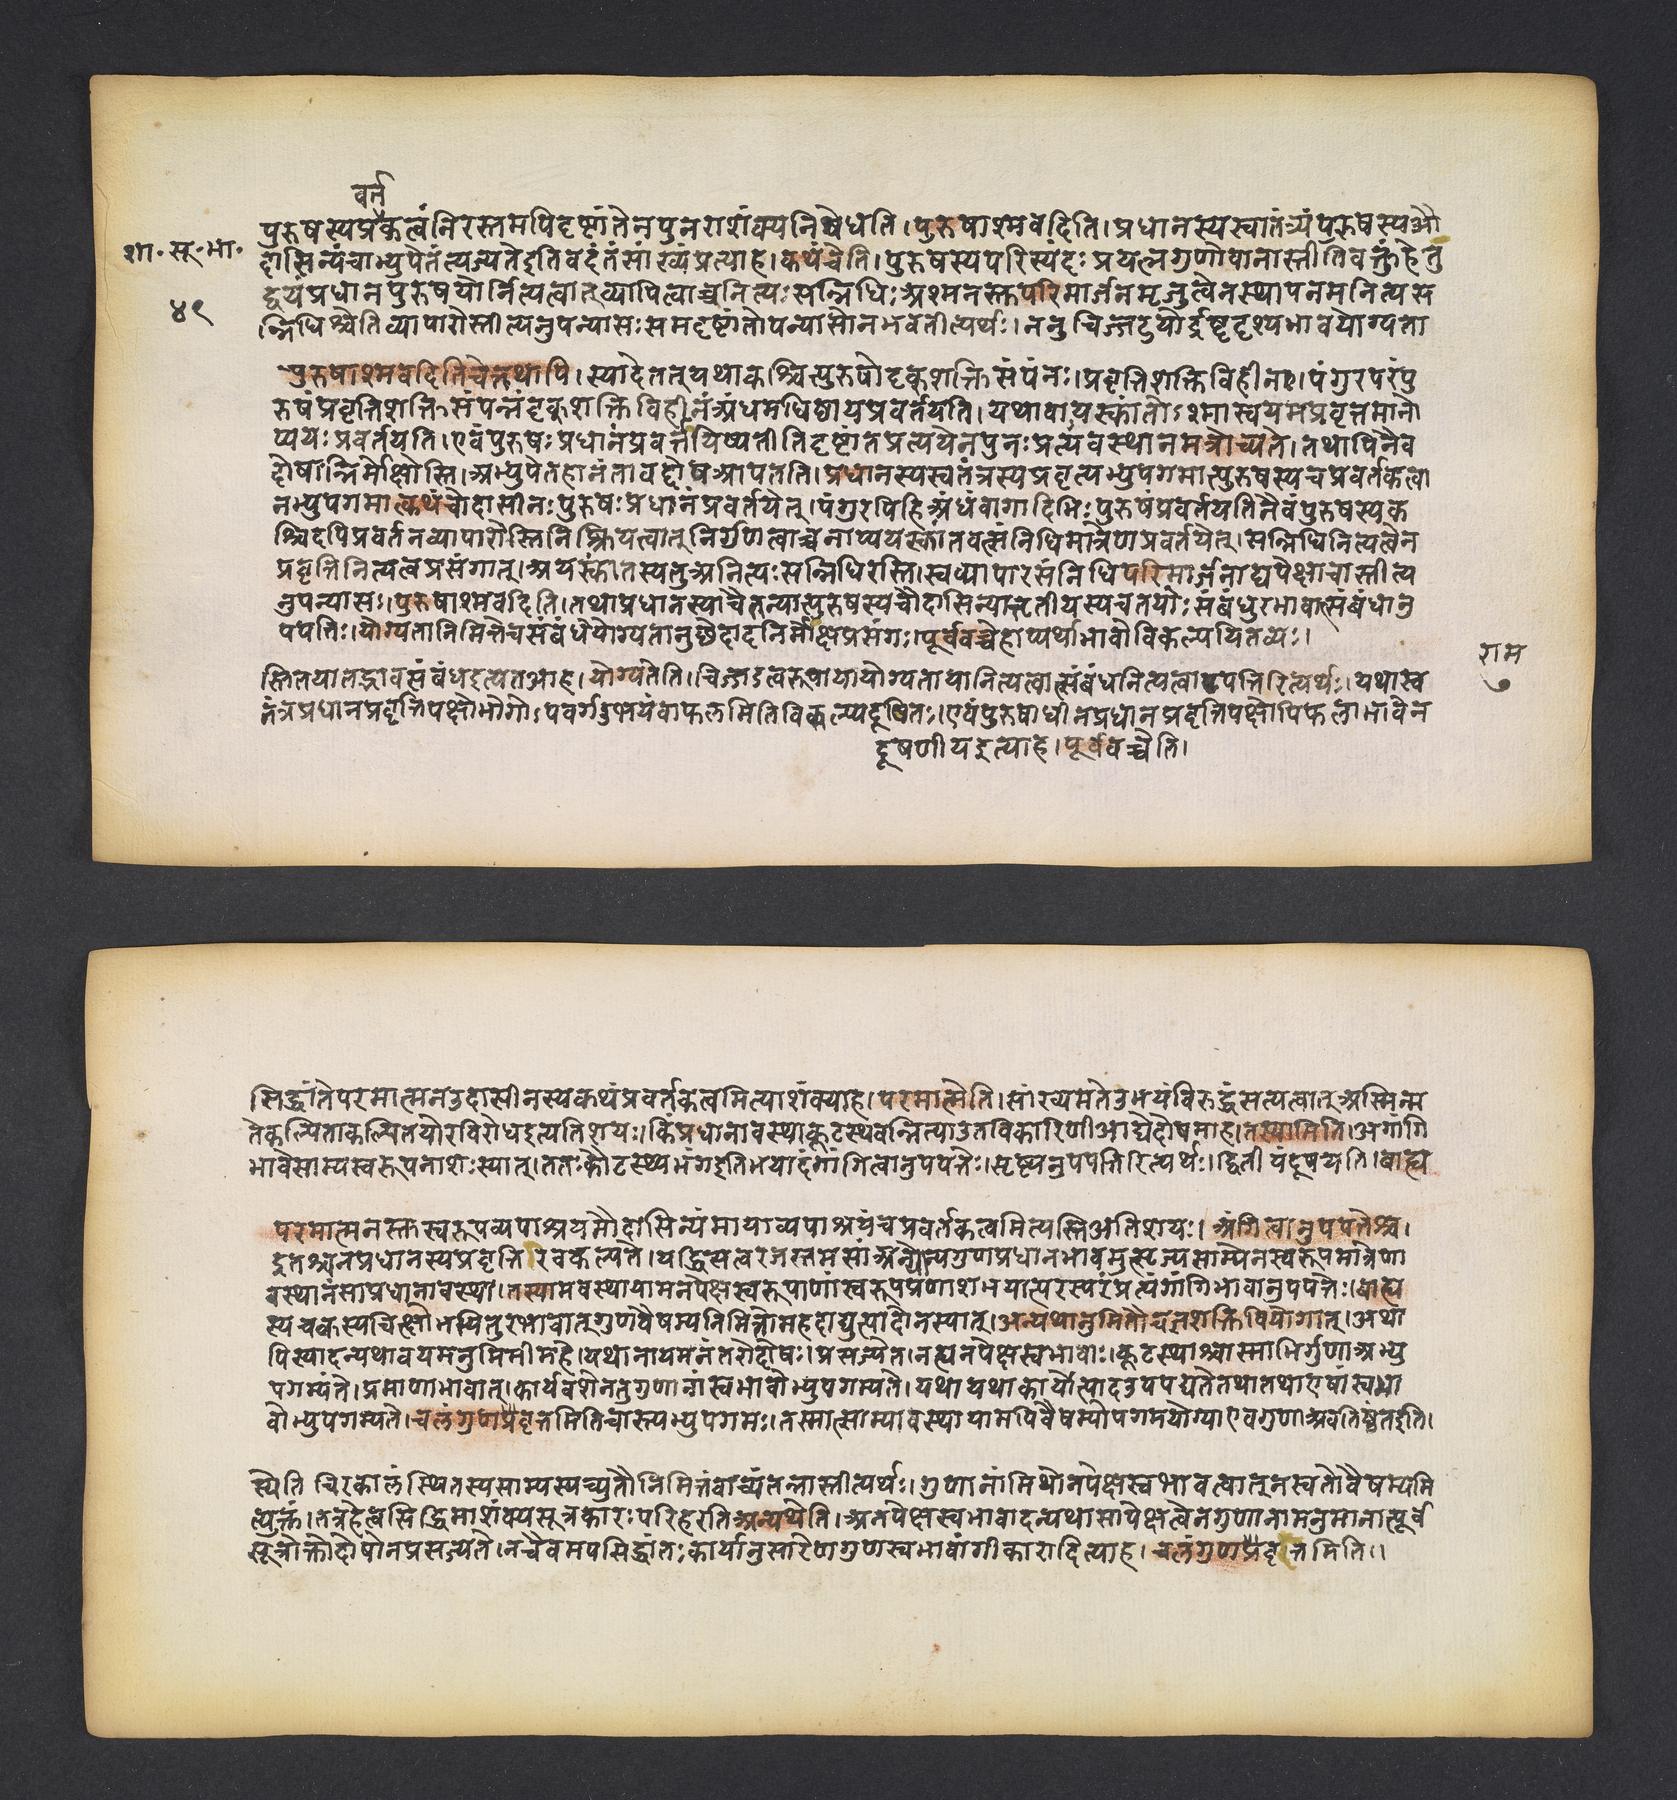 वर्त
पुरुषस्यप्रकत्वंनिरस्तमपिदृष्टांतेनपुनराशंक्यनिषेधति।पुरुषाश्मवदिति।प्रधानस्यस्वातंत्र्यंपुरुषस्यऔ
शा॰सू॰भा॰
दासिन्यंचाभ्युपेतंत्यज्यतेइतिवदंतंसांख्यंप्रत्याह।कथंचेति।पुरुषस्यपरिस्पंदः प्रयत्नगुणोवानास्तीतिवक्तुंहेतु
४९
द्वयंप्रधानपुरुषयोर्नित्यत्वात्व्यापित्वाच्चनित्यःसन्निधिःअश्मनस्तुपरिमार्जनमृजुत्वेनस्थापनमनित्यस
न्निधिश्चेतिव्यापारोस्तीत्यनुपन्यासःसमदृष्टांतोपन्यासोनभवतीत्यर्थः।ननुचिज्जडयोर्द्रष्टृदृश्यभावयोग्यता
पुरुषाश्मवदितिचेत्तथापि।स्यादेतत्यथाकश्चित्पुरुषोदृक्शक्तिसंपंनः।प्रवृत्तिशक्तिविहीनः।पंगुरपरंपु
रुषंप्रवृत्तिशक्तिसंपन्नंदृक्शक्तिविहीनंअंधमधिष्ठायप्रवर्तयति।यथावायस्कांतोऽश्मास्वयमप्रवृत्तमानो
प्ययःप्रवर्तयति।एवंपुरुषःप्रधानंप्रवर्त्तयिष्यतीतिदृष्टांतप्रत्ययेनपुनःप्रत्यवस्थानमत्रोच्यते।तथापिनैव
दोषान्निर्मोक्षोस्ति।अभ्युपेतहानंतावद्दोषआपतति।प्रधानस्यस्वतंत्रस्यप्रवृत्यभ्युपगमात्पुरुषस्यचप्रवर्तकत्वा
नभ्युपगमात्कथंचोदासीनःपुरुषःप्रधानंप्रवर्तयेत्।पंगुरपिहिअंधंवागादिभिःपुरुषंप्रवर्तयतिनैवंपुरुषस्यक
श्चिदपिप्रवर्तनव्यापारोस्तिनिष्क्रियत्वात्निर्गुणत्वाच्चनाप्ययस्कांतवत्संनिधिमात्रेणप्रवर्तयेत्।सन्निधिनित्यत्वेन
प्रवृत्तिनित्यत्वप्रसंगात्।अयस्कांतस्यतुअनित्यःसन्निधिरस्ति।स्वव्यापारसंनिधिपरिमार्जनाद्यपेक्षाचास्तीत्य
नुपन्यासः।पुरुषाश्मवदिति।तथाप्रधानस्याचैतन्यात्पुरुषस्यचौदासिन्यात्तृतीयस्यचतयोःसंबंधुरभावात्संबंधानु
पपत्तिः।योग्यतानिमित्तेचसंबंधेयोग्यतानुछेदादनिर्मोक्षप्रसंगः।पूर्ववच्चेहाप्यर्थाभावोविकल्पयितव्यः।
राम
स्तितयातद्भावसंबंधइत्यतआह।योग्यतेति।चिज्जडत्वरूपायायोग्यतायानित्यत्वात्संबंधनित्यत्वापपत्तिरित्यर्थः।यथास्व
७
तंत्रप्रधानप्रवृत्तिपक्षोभोगोऽपवर्गउभयंवाफलमितिविकल्प्यदूषितः।एवंपुरुषाधीनप्रधानप्रवृत्तिपक्षोपिफलाभावेन
दूषणीयइत्याह।पूर्ववच्चेति।
सिद्धांतेपरमात्मनउदासीनस्यकथंप्रवर्तकत्वमित्याशंक्याह।परमात्मेति।सांख्यमतेउभयंविरुद्धंसत्यत्वात्अस्मिन्म
तेकल्पिताकल्पितयोरविरोधइत्यतिशयः।किंप्रधानावस्थाकूटस्थवन्नित्याउतविकारिणीआद्येदोषमाह।तस्यामिति।अंगांगि
भावेसाम्यस्वरूपनाशःस्यात्।ततःकौटस्थ्यभंगइतिभयादंगांगित्वानुपपत्तेः।सृष्ट्यनुपपत्तिरित्यर्थः।द्वितीयंदूषयति।बाह्य
परमात्मनस्तुस्वरूपव्यपाश्रयमौदासिन्यंमायाव्यपाश्रयंचप्रवर्तकत्वमित्यस्तिअतिशयः। अंगित्वानुपपत्तेश्च।
इतश्चनप्रधानस्यप्रवृत्तिरवकल्पते।यद्धिसत्वरजस्तमसांअन्योन्यगुणप्रधानभावमुत्सृज्यसाम्येनस्वरूपमात्रेणा
वस्थानंसाप्रधानावस्था।तस्यामवस्थायामनपेक्षस्वरूपाणांस्वरूपप्रणाशभयात्परस्परंप्रत्यंगांगिभावानुपपत्तेः।बाह्य
स्यचकस्यचित्क्षोभयितुरभावात्गुणवैषम्यनिमित्तोमहदाद्युत्पादोनस्यात्।अन्यथानुमितौचज्ञशक्तिवियोगात्।अथा
पिस्यादन्यथावयमनुमिमीमहे।यथानायमनंतरोदोषः।प्रसज्येत।नह्यनपेक्षस्वभावाः।कूटस्थाश्चास्माभिर्गुणाअभ्यु
पगम्यंते।प्रमाणाभावात्।कार्यवशेनतुगुणानांस्वभावोभ्युपगम्यते।यथायथाकार्योत्पादउपपद्यतेतथातथाएषांस्वभा
वोभ्युपगम्यते।चलंगुणप्रवृत्तमितिचास्त्यभ्युपगमः।तस्मात्साम्यावस्थायामपिवैषम्योपगमयोग्याएवगुणाअवतिष्ठंतइति।
स्येति चिरकालंस्थितस्यसाम्यस्यच्युतौनिमित्तंवाच्यंतन्नास्तीत्यर्थः।गुणानांमिथोनपेक्षस्वभावत्वात्नस्वतोवैषम्यमि
त्युक्तं।तत्रहेत्वसिद्धिमाशंक्यसूत्रकारःपरिहरतिअन्यथेति।अनपेक्षस्वभावादन्यथासापेक्षत्वेनगुणानामनुमानात्पूर्व
सूत्रोक्तोदोषोनप्रसज्यते।नचैवमपसिद्धांतःकार्यानुसारेणगुणस्वभावांगीकारादित्याह। चलंगुणप्रवृत्तमिति॥